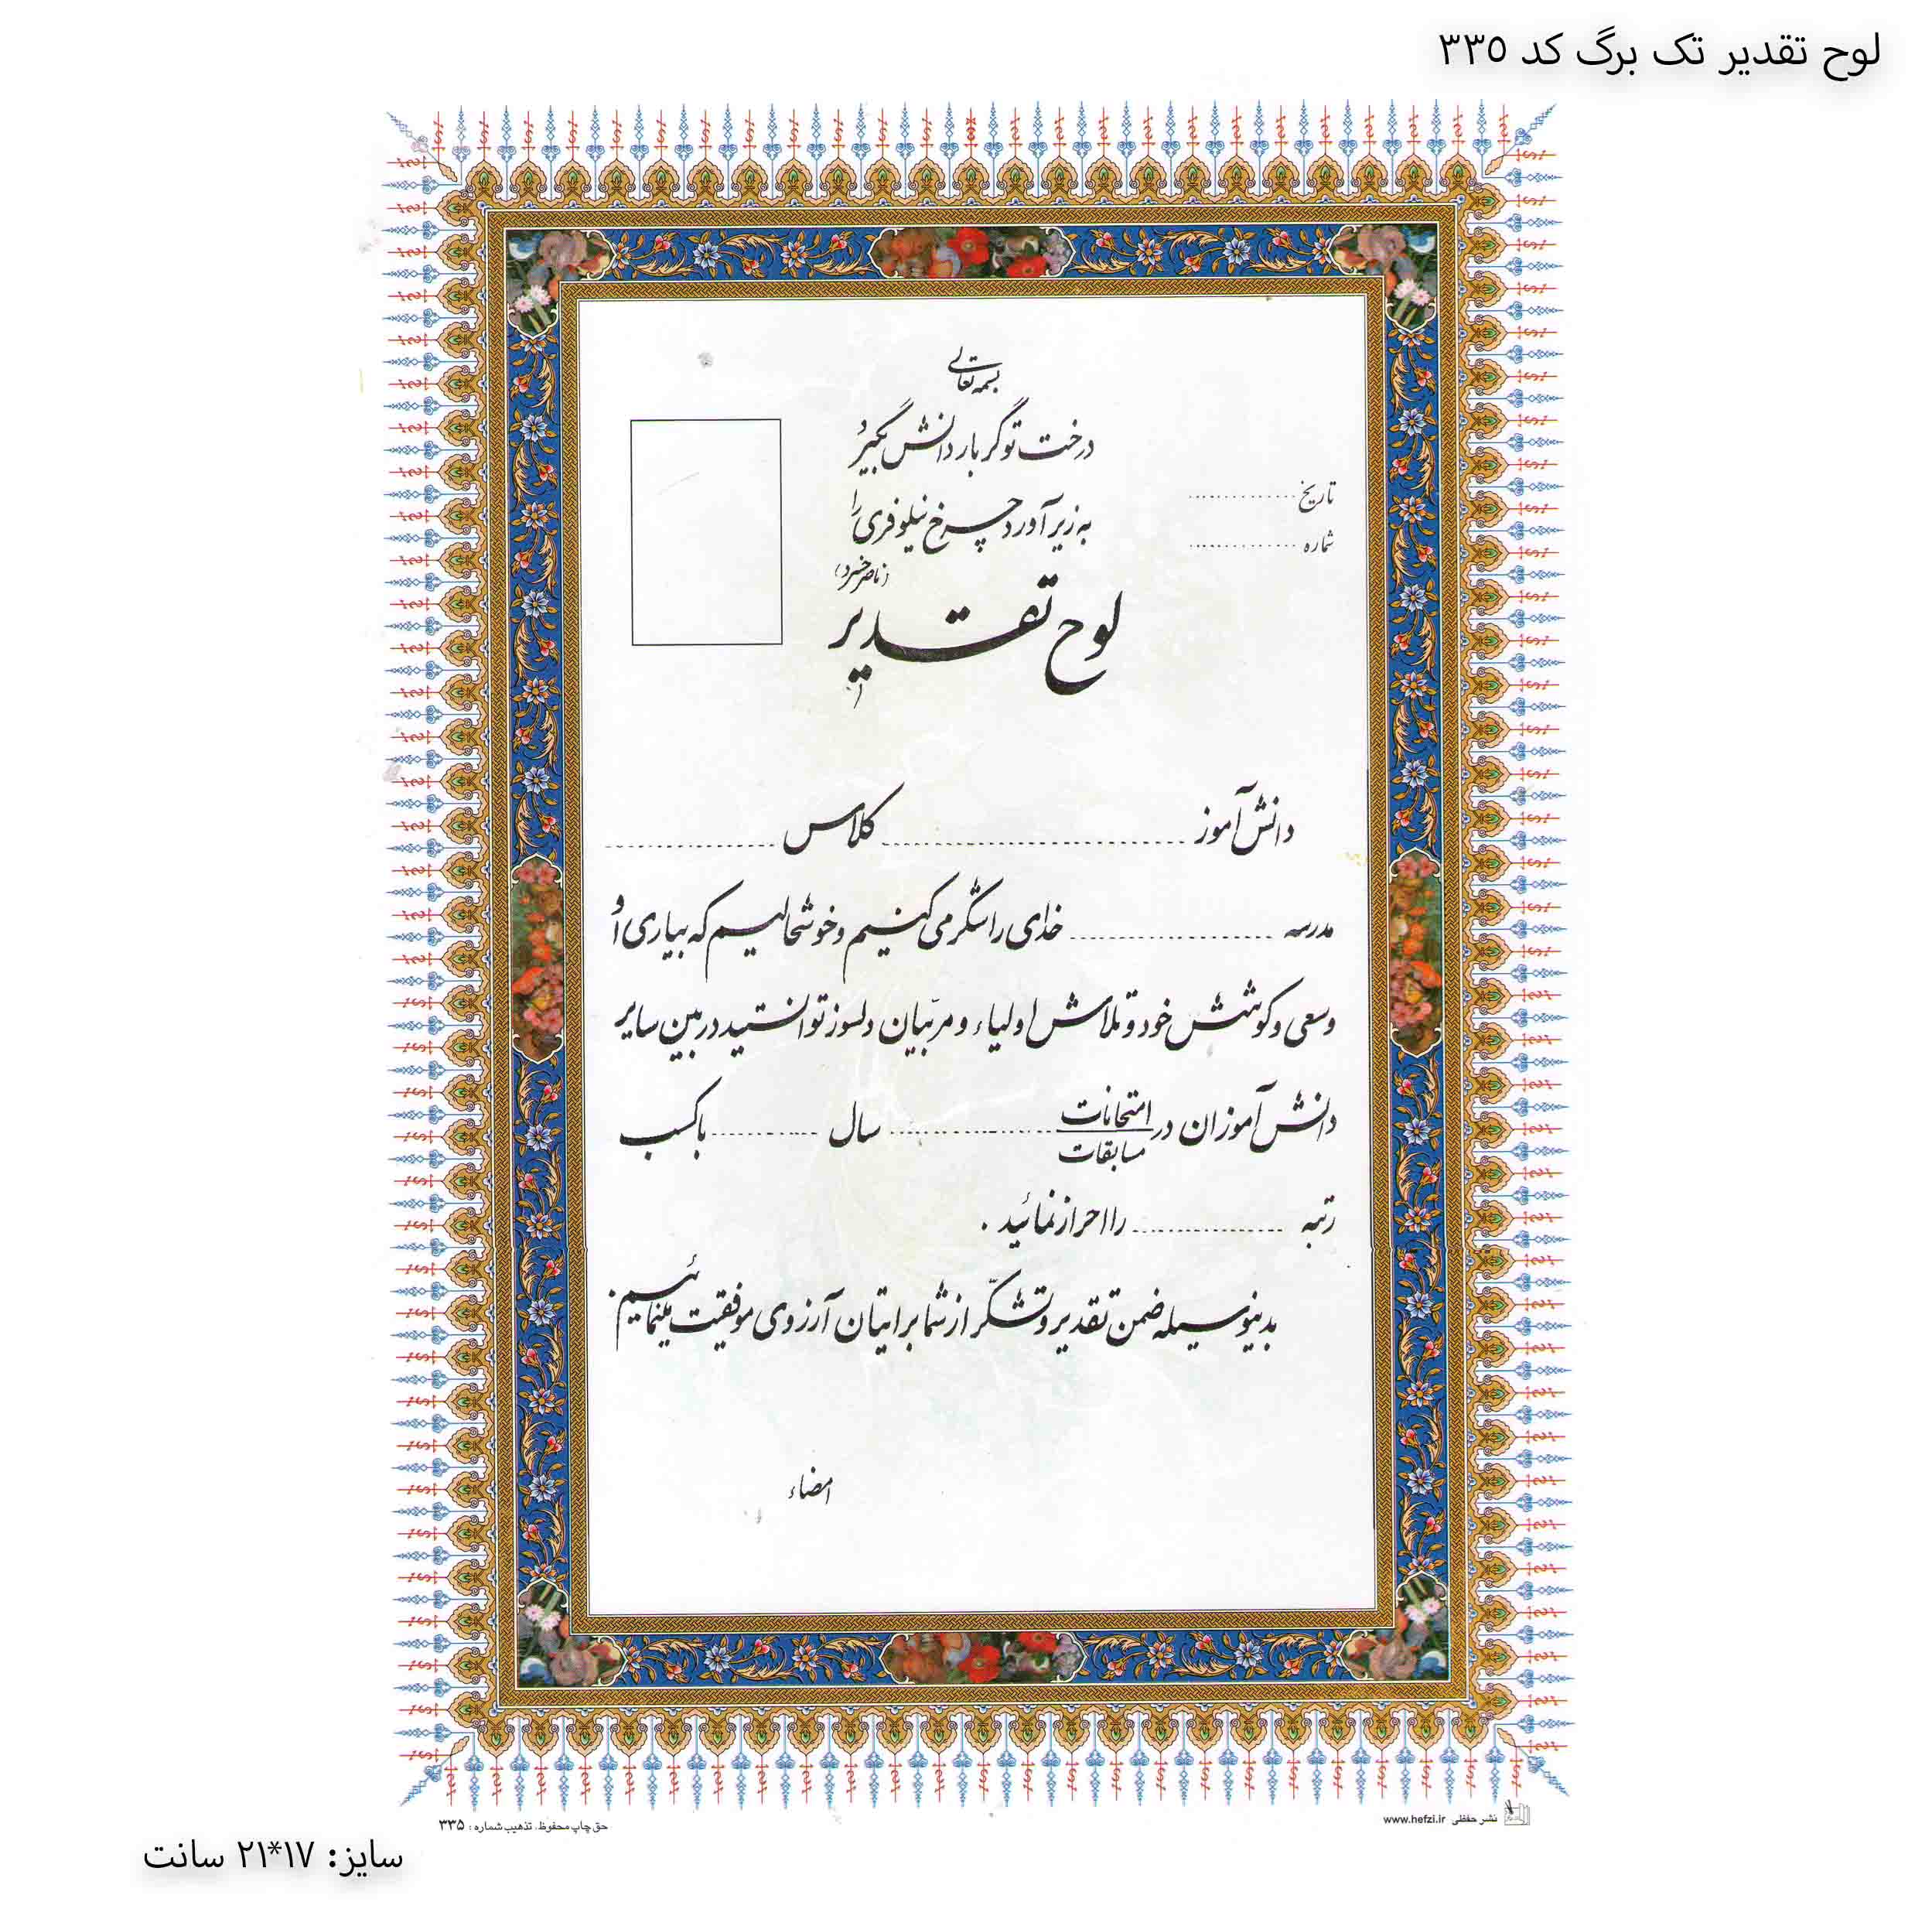 لوح تقدیر تک برگ کد ۳۳۵
بسمه تعالی
درخت تو گر بار دانش بگیرد
به زیر آورد چرخ نیلوفری را
(ناصر خسرو)
تاریخ ..............
شماره ..............
لوح تقدیر
دانش آموز ........................ کلاس ................
مدرسه ................ خدای را شکر می کنیم و خوشحالیم که بیاری او
و سعی و کوشش خود و تلاش اولیاء و مربّیان دلسوز توانستید در بین سایر
دانش آموزان در امتحانات / مسابقات ................ سال ............ با کسب
رتبه ................ را احراز نمائید .
بدینوسیله ضمن تقدیر و تشکّر از شما برایتان آرزوی موفقیت مینمائیم .
امضاء
نشر حفظی www.hefzi.ir
حق چاپ محفوظ، تذهیب شماره : ۳۳۵
سایز: ۱۷*۲۱ سانت